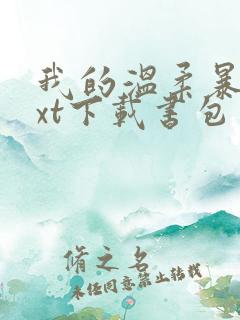 我的温柔暴
xt下载书包
脩之名
未经同意禁止转载